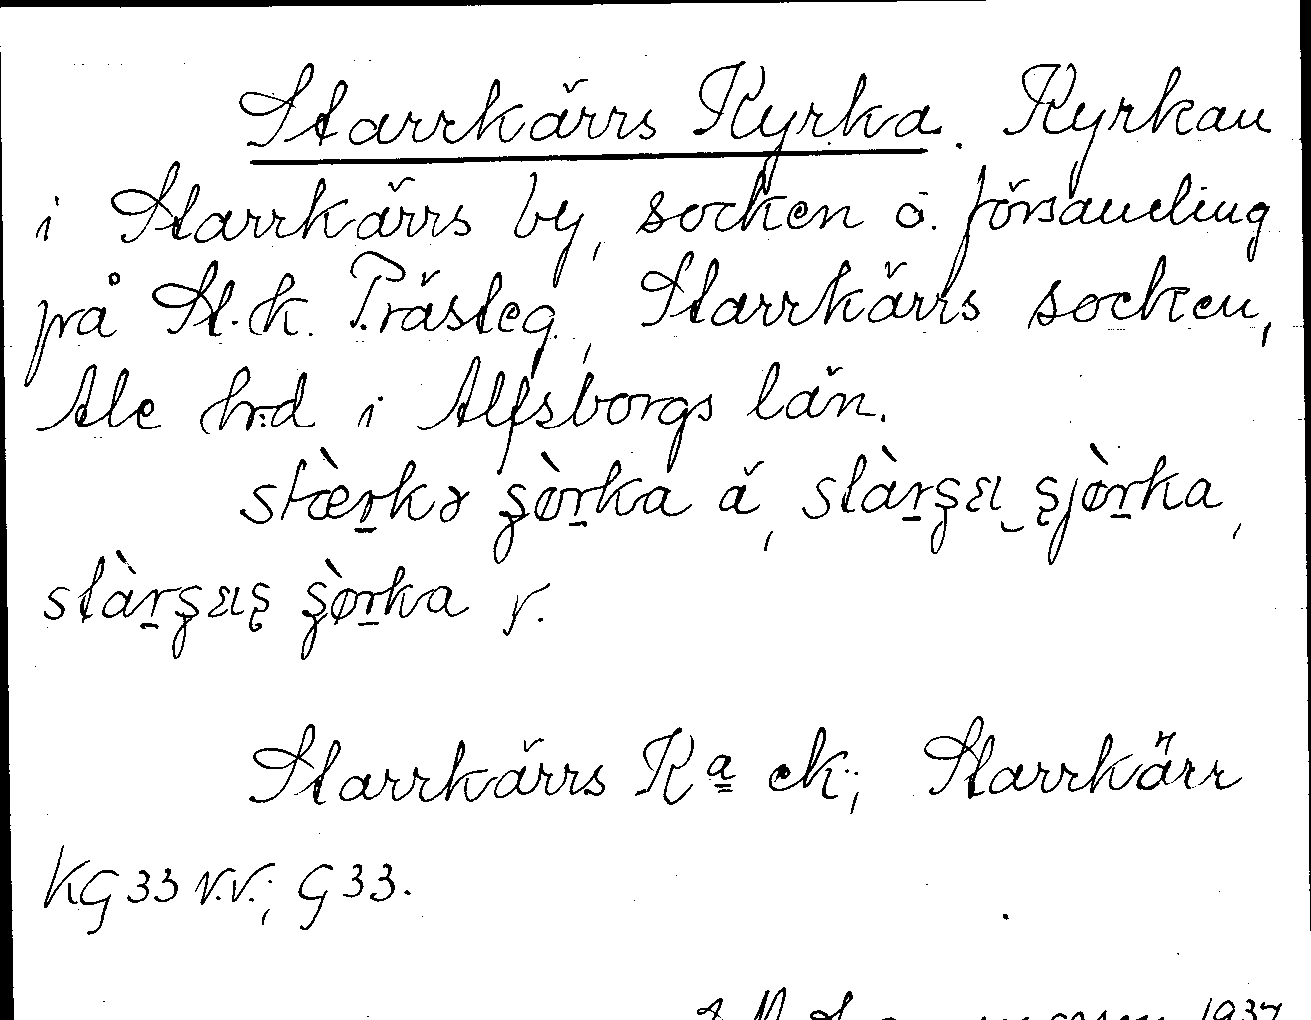 Starrkärrs Kyrka. Kyrkan
i Starrkärrs by, socken o. församling
på St. k. Prästeg., Starrkärrs socken,
Ale hrd i Älfsborgs län.
stæ̀rkɤ ʂø̀rka ä, stàrʂɛɩ ʂjø̀rka,
stàrʂɛɩʂ ʂø̀rka y.
Starrkärrs Ka ek.; Starrkärr
KG 33 V.V.; G 33.
1937